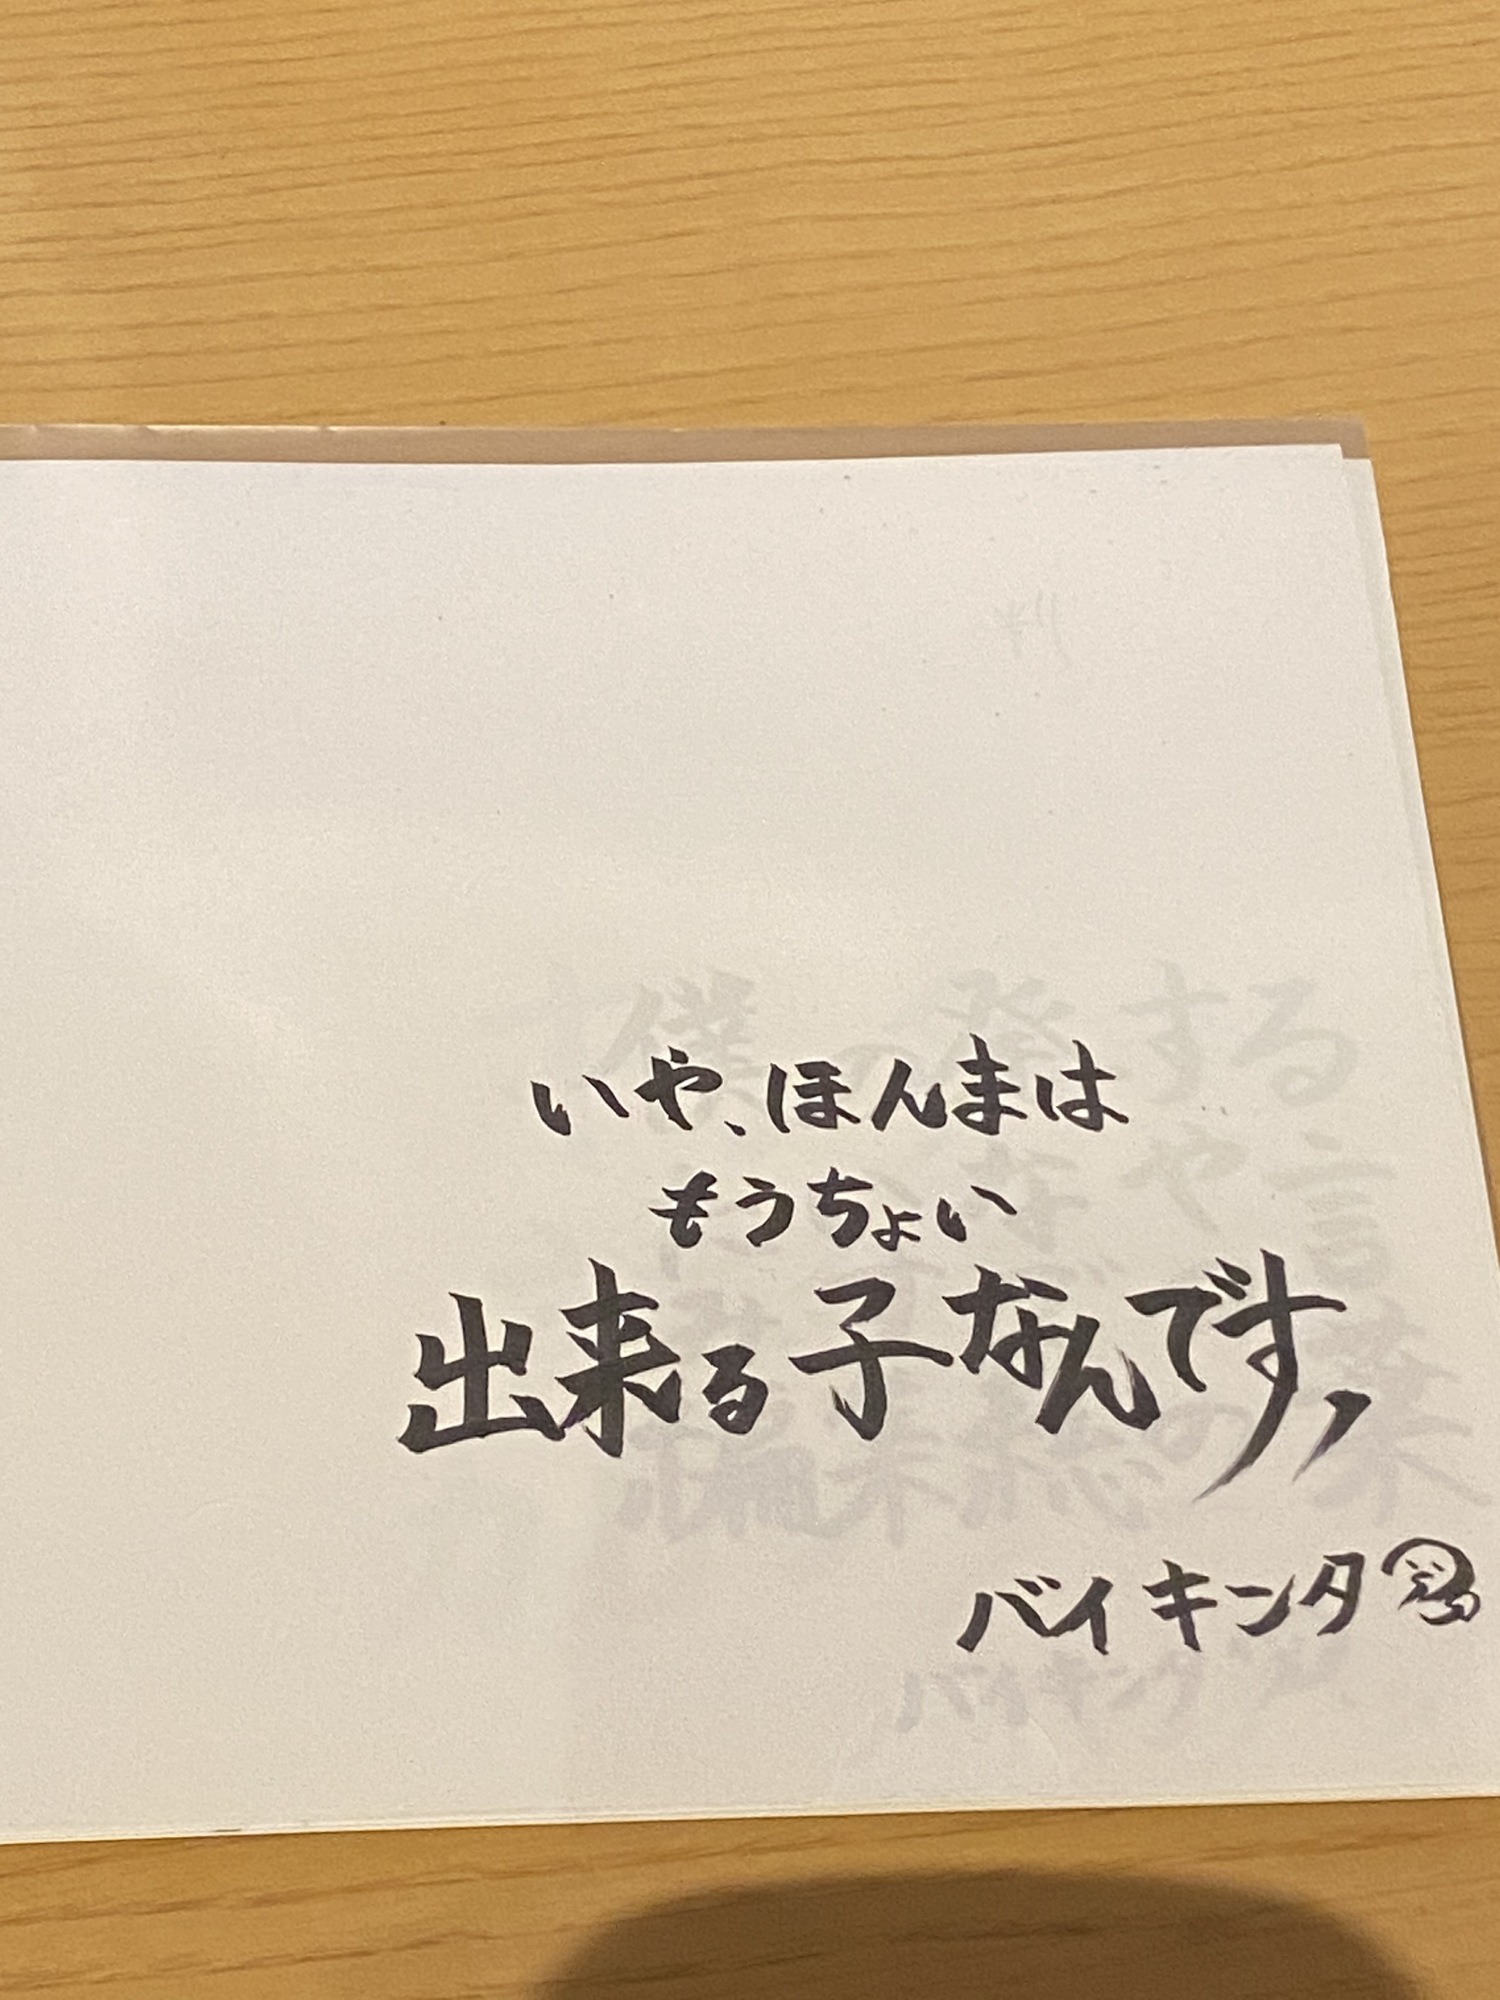 いや、ほんまは
もうちょい
出来る子なんです、
バイキンタ